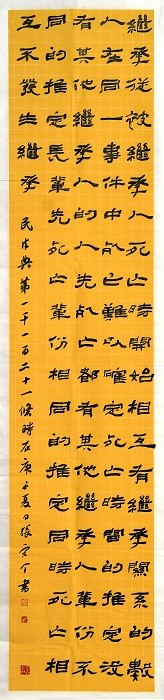 繼承從被繼承人死亡時開始相互有繼承關系的數
人在同一事件中死亡難以確定死亡時間的推定沒
有其他繼承人的人先死亡都有其他繼承人輩份不
同的推定長輩先死亡輩份相同的推定同時死亡相
互不發生繼承
民法典第一千一百二十一條時在庚子夏月張書